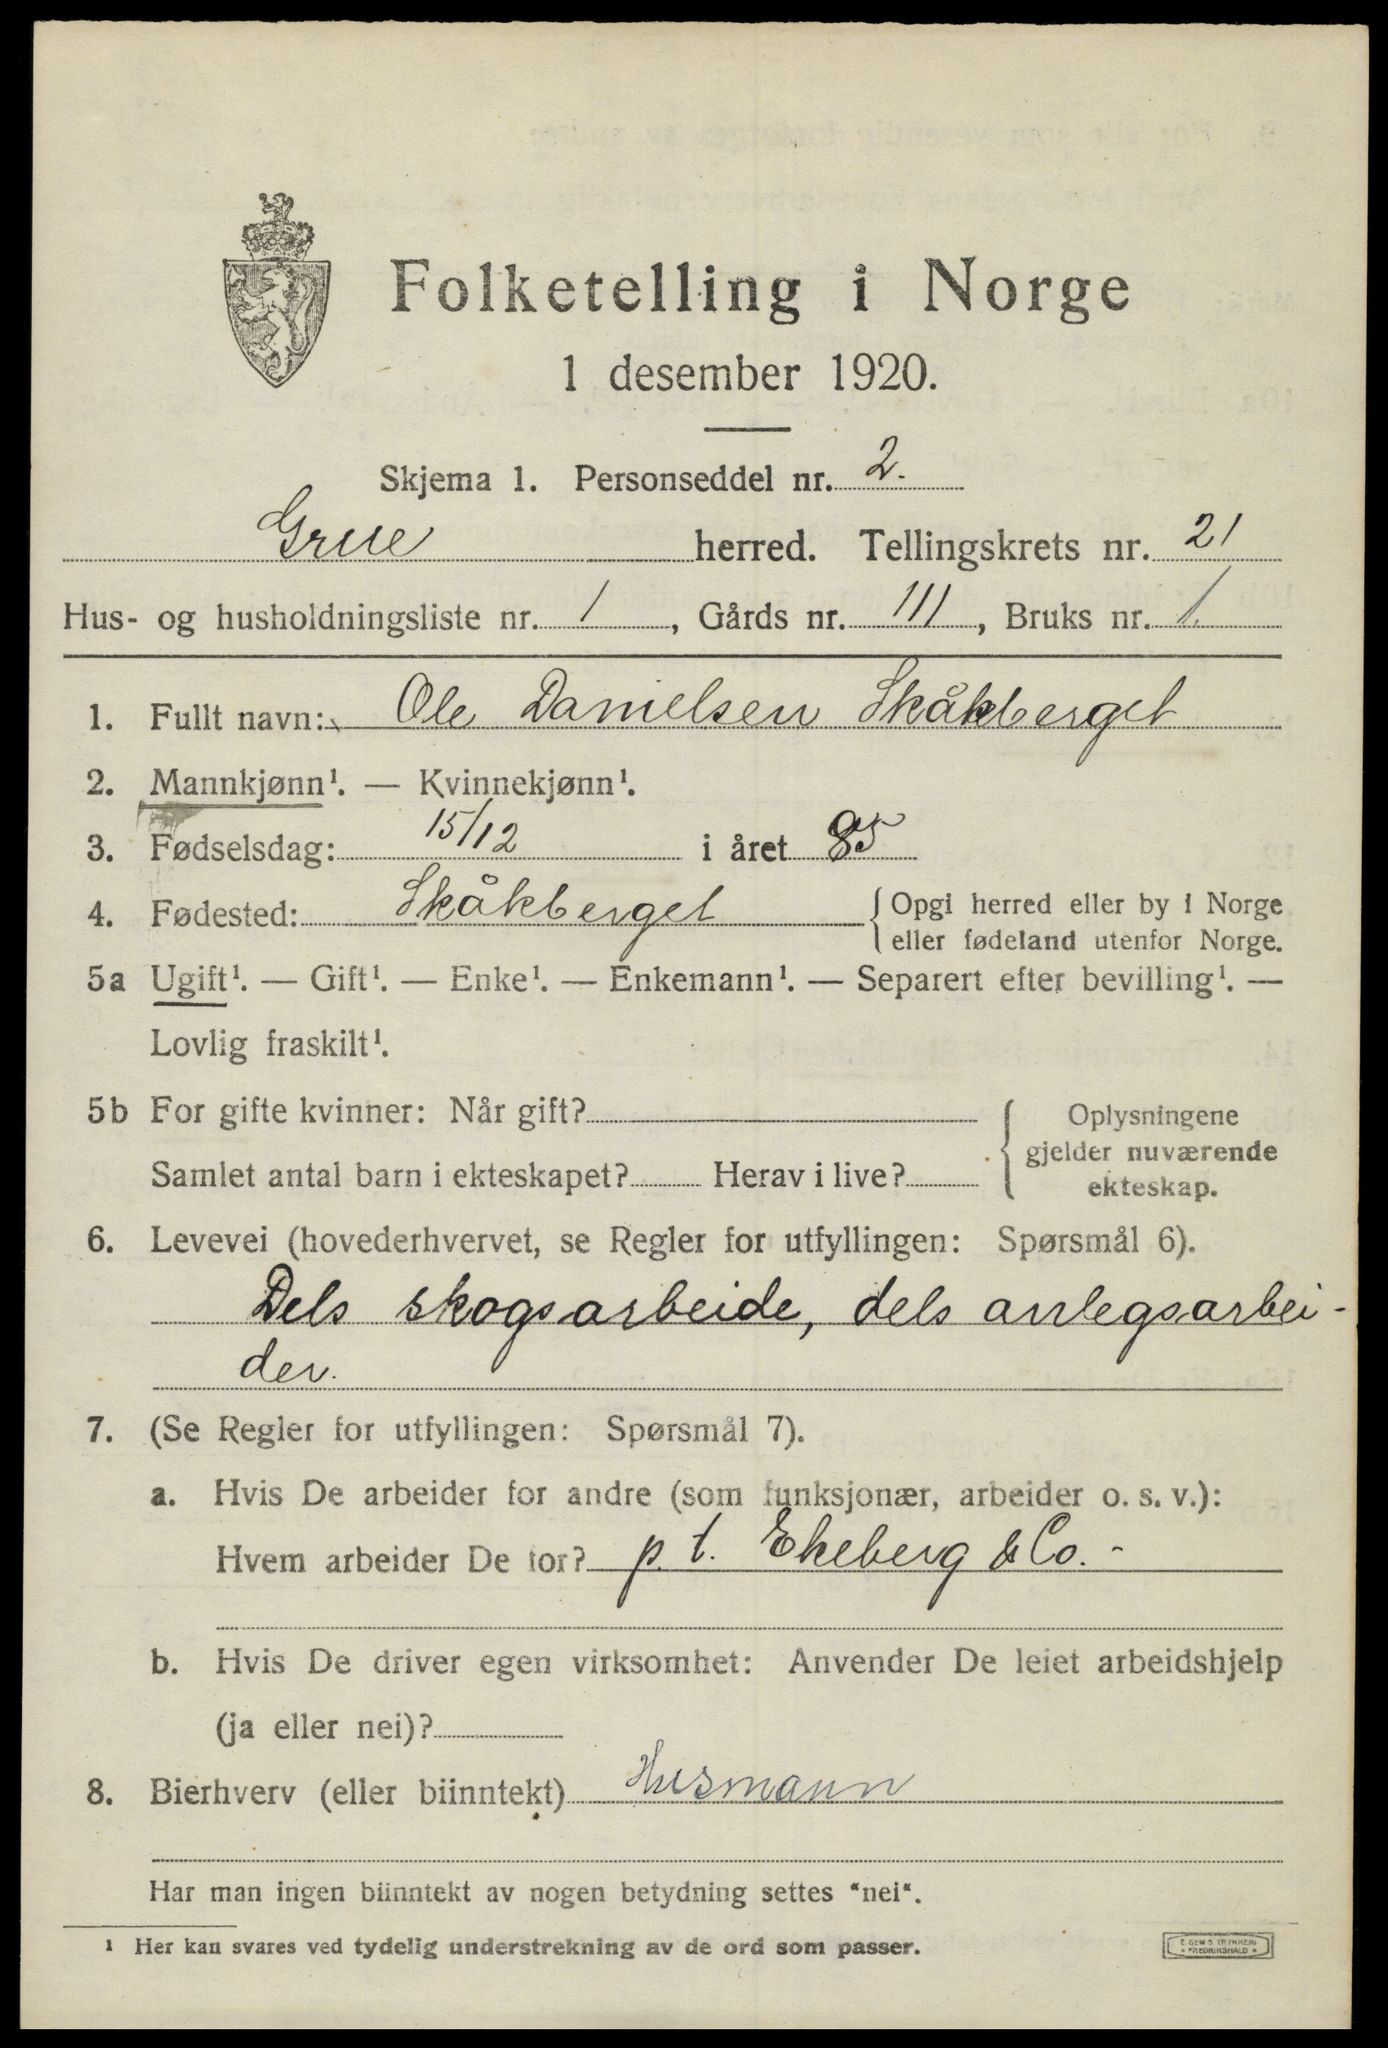 Folketelling i Norge
1 desember 1920.
Skjema 1. Personseddel nr. 2.
Grue herred. Tellingskrets nr. 21
Hus- og husholdningsliste nr. 1, Gårds nr. 111, Bruks nr. 1.
1. Fullt navn: Ole Danielsen Skåkberget
2. Mannkjønn¹. — Kvinnekjønn¹.
3. Fødselsdag: 15/12 i året 85
4. Fødested: Skåkberget { Opgi herred eller by i Norge
eller fødeland utenfor Norge.
5a Ugift¹. — Gift¹. — Enke¹. — Enkemann¹. — Separert efter bevilling¹. —
Lovlig fraskilt¹.
5b For gifte kvinner: Når gift? { Oplysningene
gjelder nuværende
Samlet antal barn i ekteskapet? Herav i live?
ekteskap.
6. Levevei (hovederhvervet, se Regler for utfyllingen: Spørsmål 6).
Dels skogsarbeide, dels anlegsarbei-
der.
7. (Se Regler for utfyllingen: Spørsmål 7).
a. Hvis De arbeider for andre (som funksjonær, arbeider o. s. v.):
Hvem arbeider De for? p. t. Ekeberg & Co. -
b. Hvis De driver egen virksomhet: Anvender De leiet arbeidshjelp
(ja eller nei)?
8. Bierhverv (eller biinntekt) Husmann
Har man ingen biinntekt av nogen betydning settes "nei".
¹ Her kan svares ved tydelig understrekning av de ord som passer.
E. SEM'S TRYKKERI
• FREDRIKSHALD •